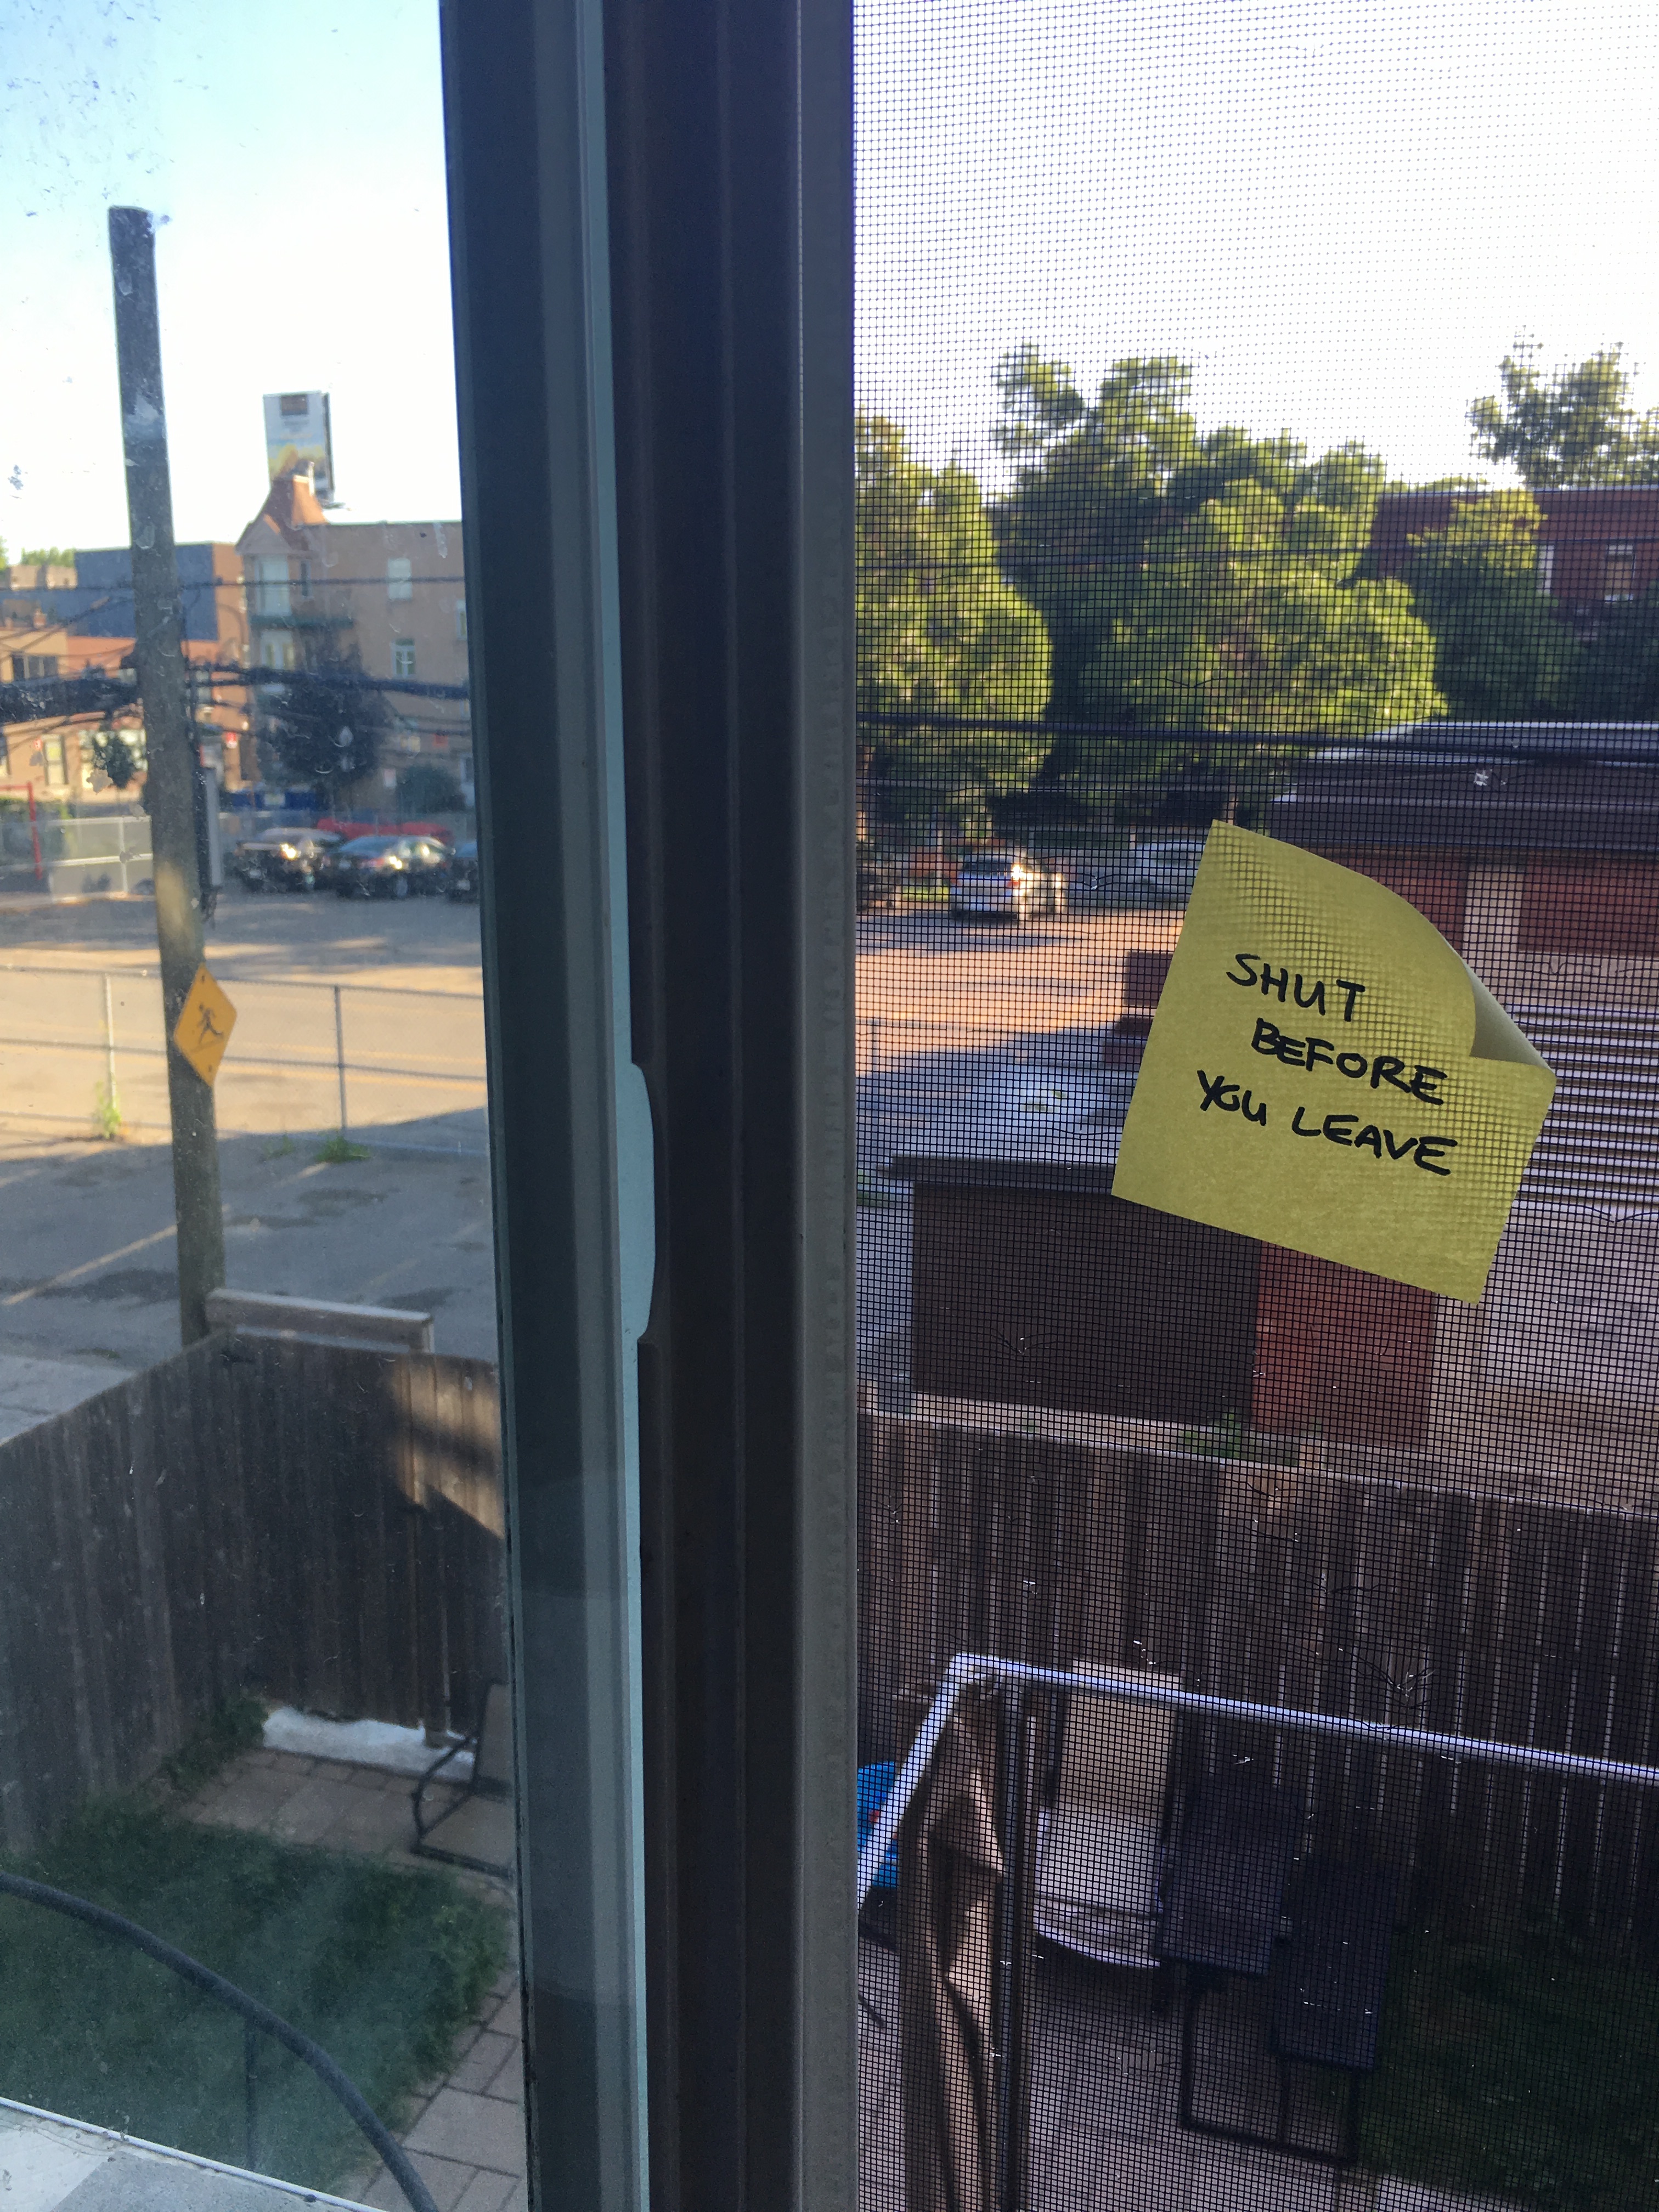 SHUT
BEFORE
YOU LEAVE